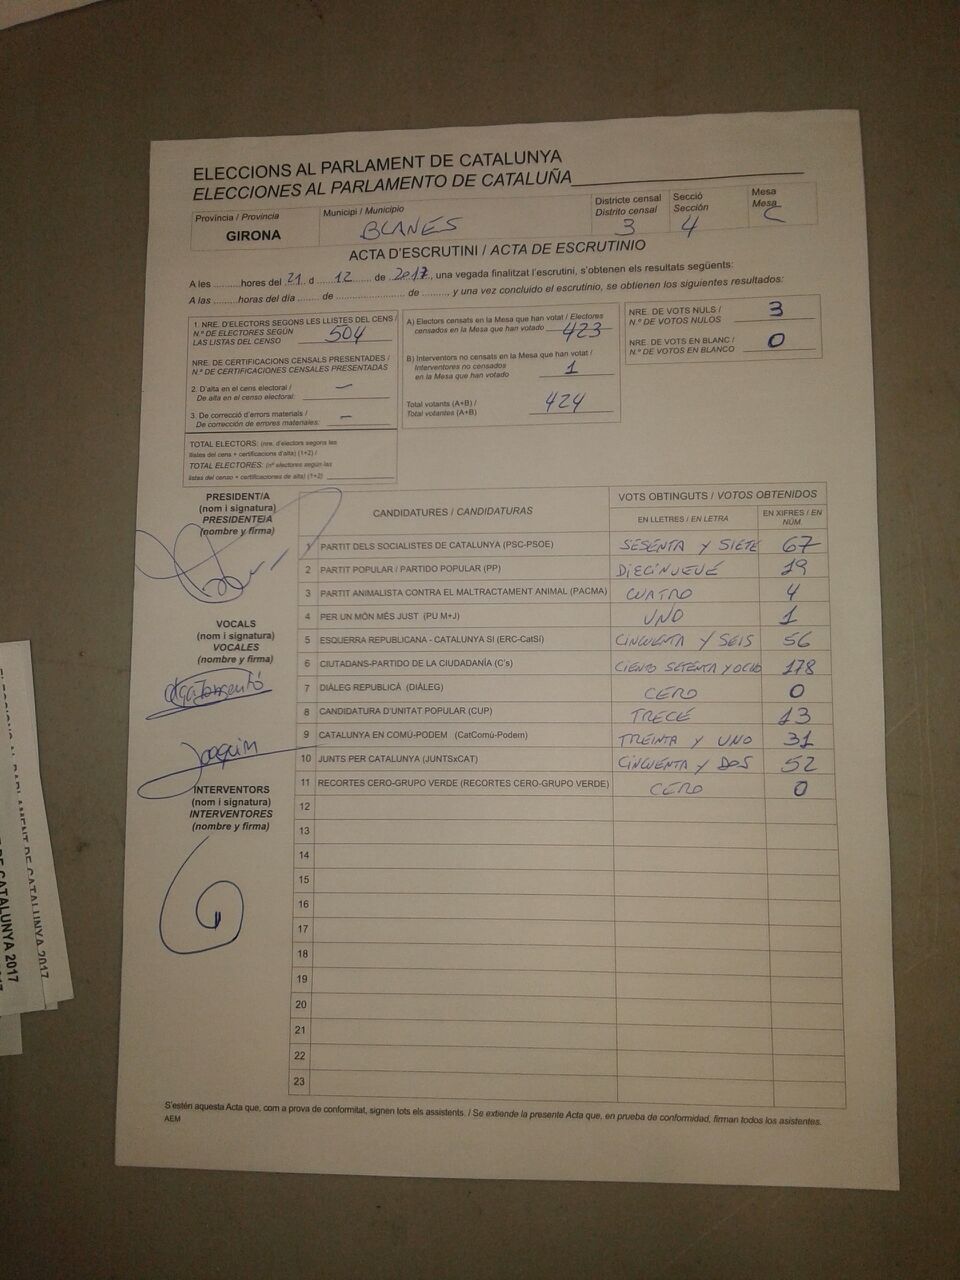 ELECCIONS AL PARLAMENT DE CATALUNYA
ELECCIONES AL PARLAMENTO DE CATALUÑA
Província / Provincia
GIRONA
Municipi / Municipio
BLANES
Districte censal
Distrito censal
3
Secció
Sección
4
Mesa
Mesa
C
ACTA D'ESCRUTINI / ACTA DE ESCRUTINIO
A les .......... hores del 21 d ... 12 ... de 2017, una vegada finalitzat l'escrutini, s'obtenen els resultats següents:
A las .......... horas del día ....... de .......................... de ........, y una vez concluido el escrutinio, se obtienen los siguientes resultados:
1. NRE. D'ELECTORS SEGONS LES LLISTES DEL CENS /
N.º DE ELECTORES SEGÚN
LAS LISTAS DEL CENSO 504
NRE. DE CERTIFICACIONS CENSALS PRESENTADES /
N.º DE CERTIFICACIONES CENSALES PRESENTADAS
2. D'alta en el cens electoral / —
De alta en el censo electoral:
3. De correcció d'errors materials / —
De corrección de errores materiales:
TOTAL ELECTORS: (nre. d'electors segons les
llistes del cens + certificacions d'alta) (1+2) /
TOTAL ELECTORES: (nº electores según las
listas del censo + certificaciones de alta) (1+2)
A) Electors censats en la Mesa que han votat / Electores
censados en la Mesa que han votado 423
B) Interventors no censats en la Mesa que han votat /
Interventores no censados
en la Mesa que han votado 1
Total votants (A+B) /
Total votantes (A+B) 424
NRE. DE VOTS NULS /
N.º DE VOTOS NULOS 3
NRE. DE VOTS EN BLANC /
N.º DE VOTOS EN BLANCO 0
PRESIDENT/A
(nom i signatura)
PRESIDENTE/A
(nombre y firma)
VOCALS
(nom i signatura)
VOCALES
(nombre y firma)
Joaquim
INTERVENTORS
(nom i signatura)
INTERVENTORES
(nombre y firma)
CANDIDATURES / CANDIDATURAS
VOTS OBTINGUTS / VOTOS OBTENIDOS
EN LLETRES / EN LETRA
EN XIFRES / EN
NÚM.
1 PARTIT DELS SOCIALISTES DE CATALUNYA (PSC-PSOE) SESENTA Y SIETE 67
2 PARTIT POPULAR / PARTIDO POPULAR (PP) DIECINUEVE 19
3 PARTIT ANIMALISTA CONTRA EL MALTRACTAMENT ANIMAL (PACMA) CUATRO 4
4 PER UN MÓN MÉS JUST (PU M+J) UNO 1
5 ESQUERRA REPUBLICANA - CATALUNYA SÍ (ERC-CatSí) CINCUENTA Y SEIS 56
6 CIUTADANS-PARTIDO DE LA CIUDADANÍA (C's) CIENTO SETENTA Y OCHO 178
7 DIÀLEG REPUBLICÀ (DIÀLEG) CERO 0
8 CANDIDATURA D'UNITAT POPULAR (CUP) TRECE 13
9 CATALUNYA EN COMÚ-PODEM (CatComú-Podem) TREINTA Y UNO 31
10 JUNTS PER CATALUNYA (JUNTSxCAT) CINCUENTA Y DOS 52
11 RECORTES CERO-GRUPO VERDE (RECORTES CERO-GRUPO VERDE) CERO 0
12
13
14
15
16
17
18
19
20
21
22
23
S'estén aquesta Acta que, com a prova de conformitat, signen tots els assistents. / Se extiende la presente Acta que, en prueba de conformidad, firman todos los asistentes.
AEM
DE CATALUNYA 2017
AL PARLAMENT DE CATALUNYA 2017